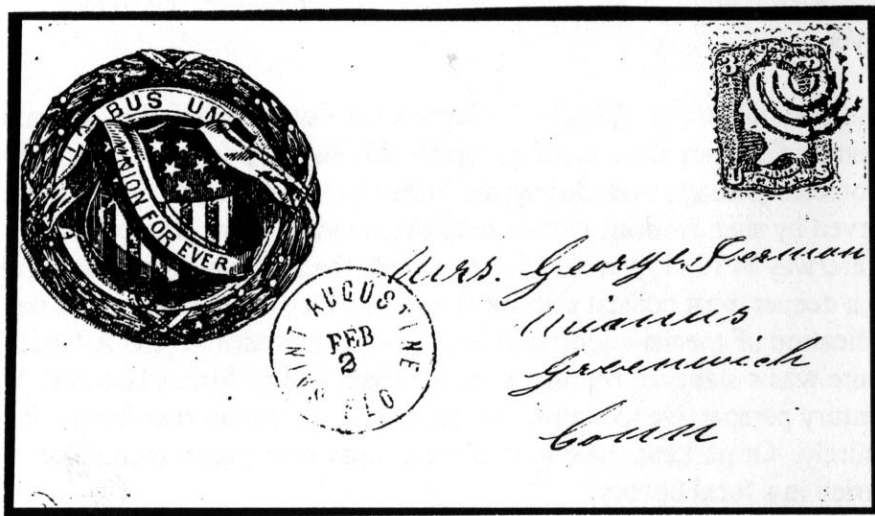 PLURIBUS UN
UNION FOR EVER
SAINT AUGUSTINE
FEB
2
FLO.
Mrs. George Ferman
Mianus
Greenwich
Conn